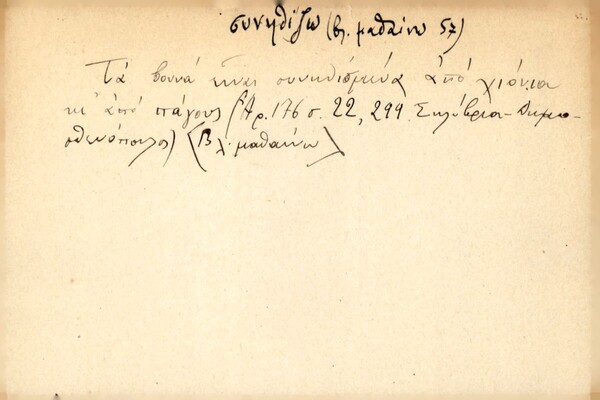 συνηθίζω (βλ. μαθαίνω 57)
Τά βουνά εἶναι συνηθισμένα ἀπό χιόνια
κι' ἀπό πάγους (Ἀρ. 176 σ. 22, 299 Σηλύβρια - Δημο-
σθενόπουλος) (Βλ. μαθαίνω)